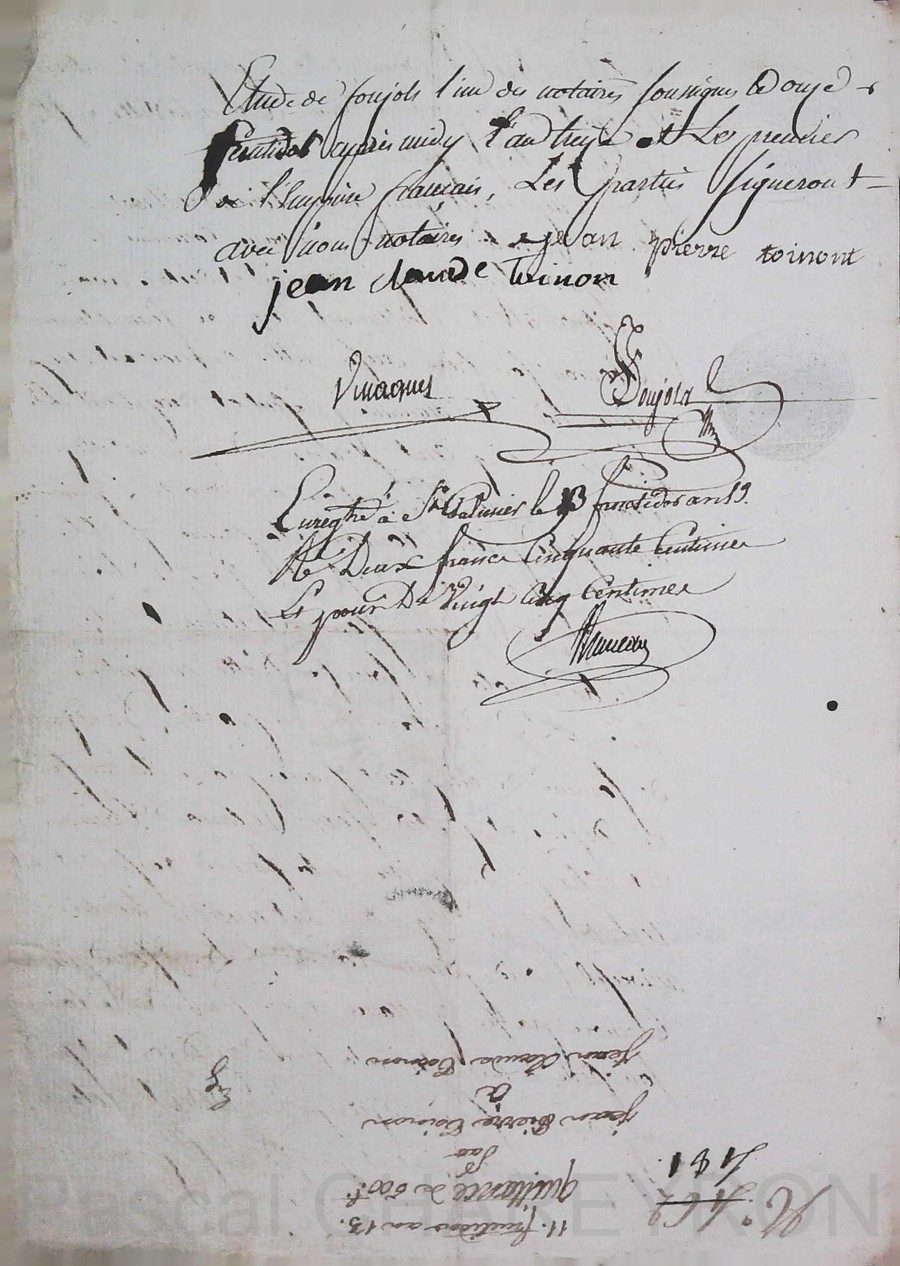 Etude de foujols l'un des notaires soussignes le douze
fructidor après midy l'an treize et Le premier
de l'Empire français, Les parties signeront
avec nous notaires. jean pierre toinont
jean claude toinon
Foujols
Enregtré à St le 13 fructidor an 13.
Rç Deux francs Cinquante Centimes
Et pour De Vingt Cinq Centimes
11. fructidor an 13.
quittance de 600 f.
Par
jean Pierre toinon
a
jean Claude toinon
181
Pascal CHAREYRON